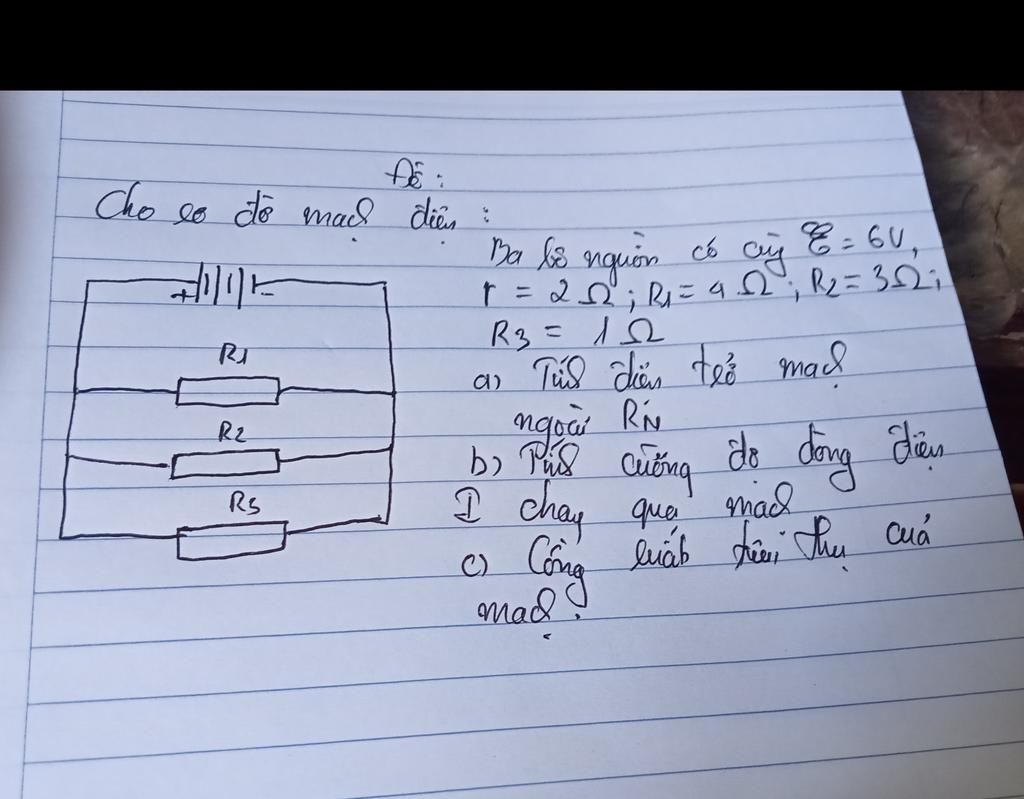 Đề:
Cho sơ đồ mạch điện:
Ba bộ nguồn có cùng ℰ = 6V,
r = 2 Ω; R1 = 4 Ω; R2 = 3Ω;
R3 = 1 Ω
+ -
R1
R2
R3
a) Tính điện trở mạch
ngoài RN
b) Tính cường độ dòng điện
I chạy qua mạch
c) Công suất tiêu thụ của
mạch.